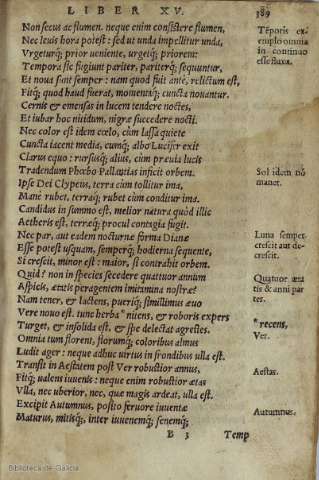 LIBER XV.
389
Non secus ac flumen. neque enim consistere flumen,
Nec leuis hora potest: sed ut unda impellitur unda,
Vrgeturq́; prior ueniente, urgetq́; priorem:
Tempora sic fugiunt pariter, pariterq́; sequuntur,
Et noua sunt semper: nam quod fuit antè, relictum est,
Fitq́; quod haud fuerat, momentaq́; cuncta nouantur.
Cernis & emensas in lucem tendere noctes,
Et iubar hoc nitidum, nigræ succedere nocti.
Nec color est idem cœlo, cùm lassa quiete
Cuncta iacent media, cumq́; albo Lucifer exit
Clarus equo: rursusq́; alius, cùm præuia lucis
Tradendum Phœbo Pallantias inficit orbem.
Ipse Dei Clypeus, terra cùm tollitur ima,
Manè rubet, terraq́; rubet cùm conditur ima.
Candidus in summo est, melior natura quòd illic
Aetheris est, terræq́; procul contagia fugit.
Nec par, aut eadem nocturnæ forma Dianæ
Esse potest usquam, semperq́; hodierna sequente,
Si crescit, minor est: maior, si contrahit orbem.
Quid? non in species secedere quattuor annum
Aspicis, ætatis peragentem imitamina nostræ?
Nam tener, & lactens, pueriq́; simillimus æuo
Vere nouo est. tunc herba * nitens, & roboris expers
Turget, & insolida est, & spe delectat agrestes.
Omnia tum florent, florumq́; coloribus almus
Ludit ager: neque adhuc uirtus in frondibus ulla est.
Transit in Aestatem post Ver robustior annus,
Fitq́; ualens iuuenis: neque enim robustior ætas
Vlla, nec uberior, nec, quæ magis ardeat, ulla est.
Excipit Autumnus, posito feruore iuuentæ
Maturus, mitisq́; inter iuuenemq́; senemq́;
B 3
Temp
Tēporis ex-
emplo omnia
in continuo
esse fluxa.
Sol idem nō
manet.
Luna semper
crescit aut de-
crescit.
Quatuor æta
tis & anni par
tes.
* recens,
Ver.
Aestas.
Autumnus.
Biblioteca de Galicia